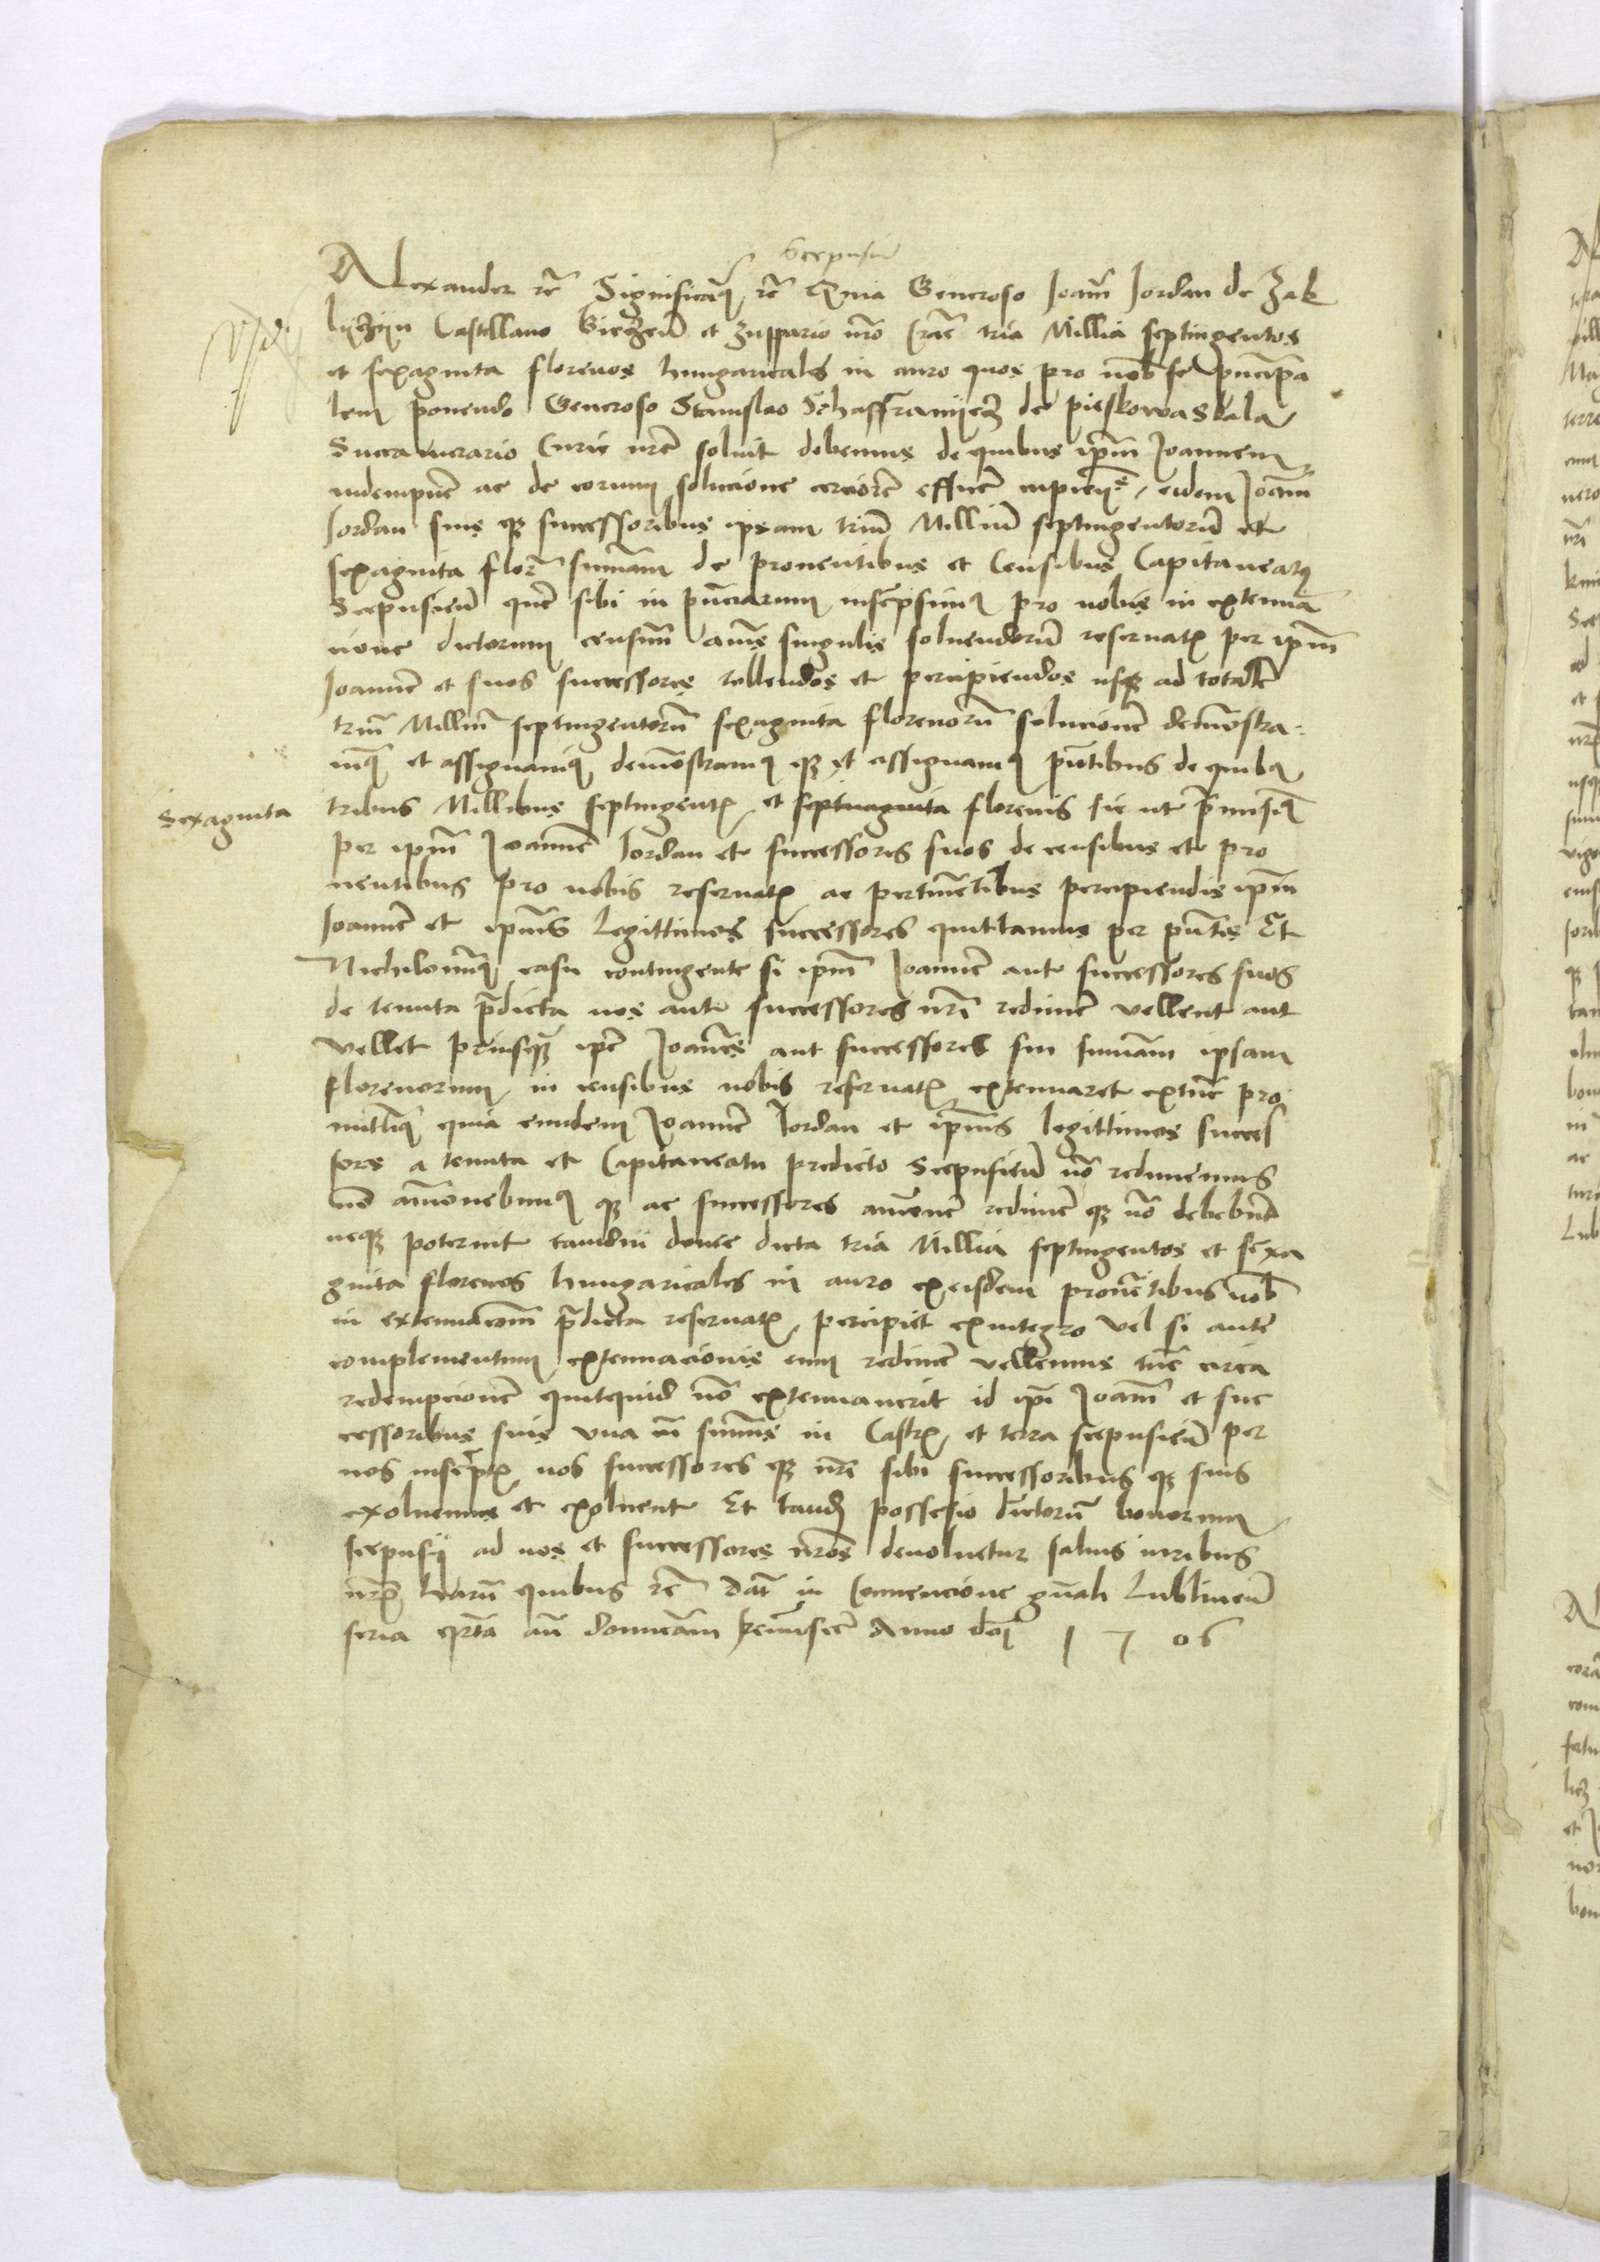 Scepusiu
Alexander rc Significamus rc Quia Generoso Joanni Jordan de Zak
liczyn Castellano Biecen et zuppario nro Crac tria Millia septingentos
et sexaginta florenos hungaricales in auro quos pro nob se principa
lem ponendo Generoso Stanislao Schaffranyecz de pieskowa skala
Succamerario Curie nre solvit debemus de quibus ipm Joannem
indempnem ac de eorum solucione cerciorem efficere cupientes eidem Joann
Jordan suis qz successoribus ipsam trium Millium septingentorum et
sexaginta flor summam de proventibus et Censibus Capitaneatus
Scepusien que sibi in summa inscripsimus pro nobis in extenua
cione dictorum censuum annis singulis solvendorum reservatis per ipm
Joannem et suos successores tollendos et percipiendos usqz ad totale
trium Millium septingentorum sexaginta florenorum solucionem demonstra
mus et assignamus demonstramus qz et assignamus pntibus de quibus
Sexaginta
tribus Millibus septingentis et septuaginta florenis sic ut premissum
per ipm Joannem Jordan et successores suos de censibus et pro
ventibus pro nobis reservatis ac pertinentibus percipiendis ipm
Joannem et ipius legittimos successores quittamus per pntes Et
Nichilominus casu contingente si ipm Joannem aut successores suos
de tenuta predicta nos aut successores nri redimere vellent aut
vellet priusqz ipe Joannes aut successores sui summam ipsam
florenorum in censibus nobis reservatis extenuaret extunc pro
mittimus quia eundem Joannem Jordan et ipius legittimos succes
sores a tenuta et Capitaneatu predicto Scepusien non redimemus
nec amovebimus qz ac successores amovere redimere qz non debebunt
neqz poterint tamdiu donec dicta tria Millia septingentos et sexa
ginta florenos hungaricales in auro ex eisdem proventibus nob
in extenuacionem predicta reservatis percipiet ex integro Vel si ante
complementum extenuacionis eum redimere vellemus tunc circa
redempcionem quitquid non extenuaverit id ipi Joanni et suc
cessoribus suis una cum summis in Castris et terra scepusien per
nos inscriptis nos successores qz nri sibi successoribus qz suis
exolvemus et exolvent Et tandem possessio dictorum bonorum
scepusii ad nos et successores nros devolvetur salvis iuribus
nris harum quibus rc Dat in Convencione gnali Lublinen
feria qrta an dominicam Reminiscere Anno dni 1506